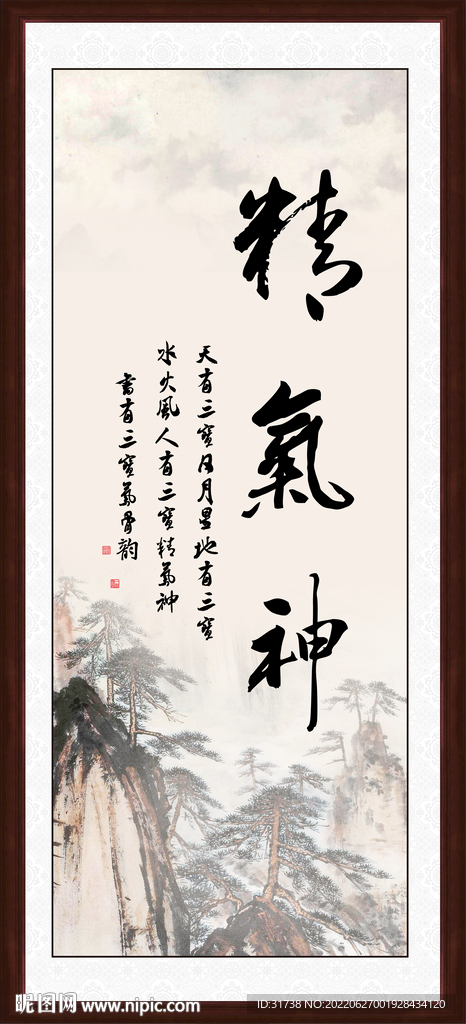 精氣神
天有三寶日月星地有三寶
水火風人有三寶精氣神
書有三寶氣骨韵
昵图网 www.nipic.com
ID:31738 NO:20220627001928434120